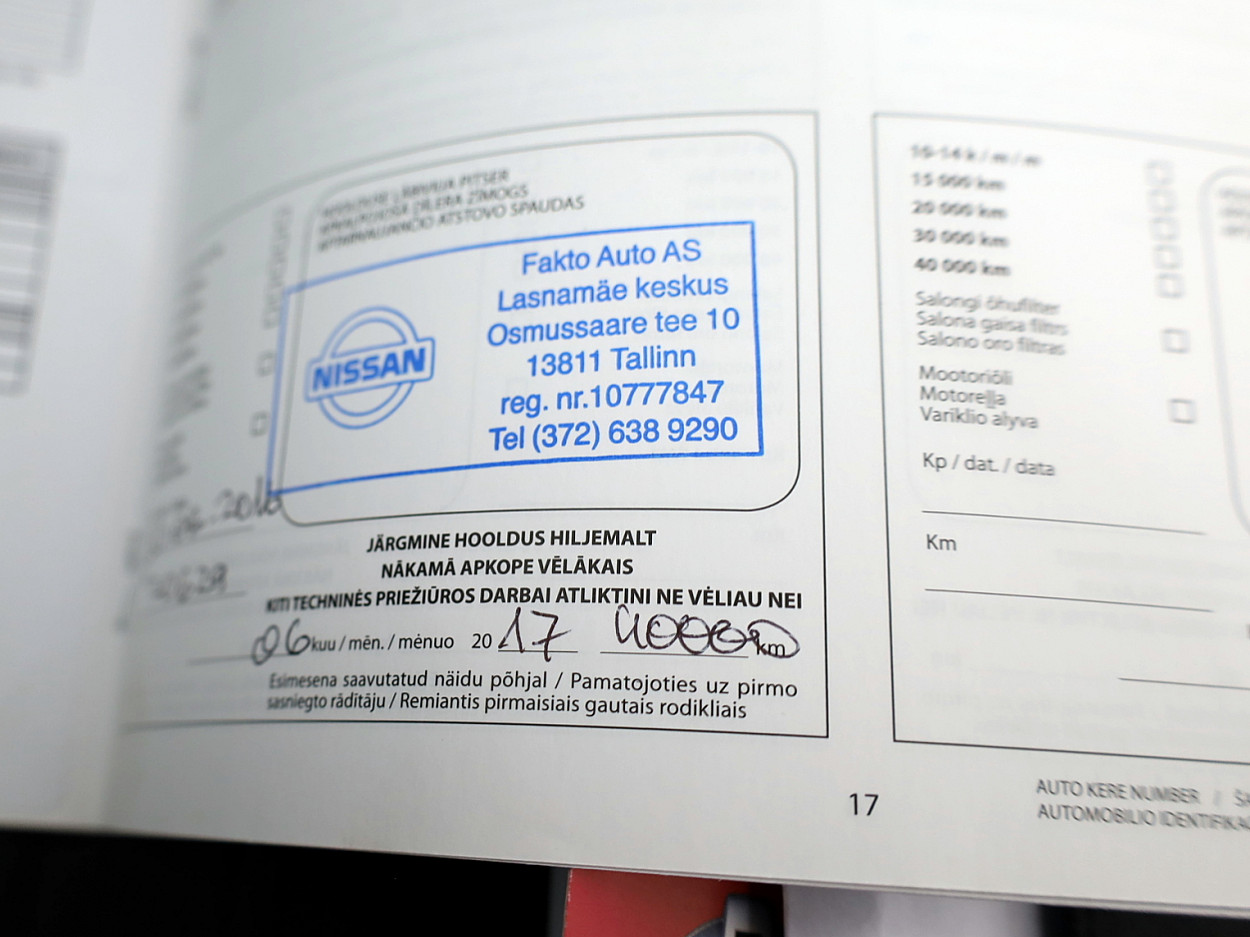 NISSAN
Fakto Auto AS
Lasnamäe keskus
Osmussaare tee 10
13811 Tallinn
reg. nr.10777847
Tel (372) 638 9290
ATSTOVO SPAUDAS
JÄRGMINE HOOLDUS HILJEMALT
NĀKAMĀ APKOPE VĒLĀKAIS
KITI TECHNINĖS PRIEŽIŪROS DARBAI ATLIKTINI NE VĖLIAU NEI
06 kuu / mēn. / mėnuo 2017 40000 km
Esimesena saavutatud näidu põhjal / Pamatojoties uz pirmo
sasniegto rādītāju / Remiantis pirmaisiais gautais rodikliais
17
15 000 km
20 000 km
30 000 km
40 000 km
Salongi õhufilter
Salona gaisa filtrs
Salono oro filtras
Mootoriõli
Motoreļļa
Variklio alyva
Kp / dat. / data
Km
AUTO KERE NUMBER /
AUTOMOBILIO